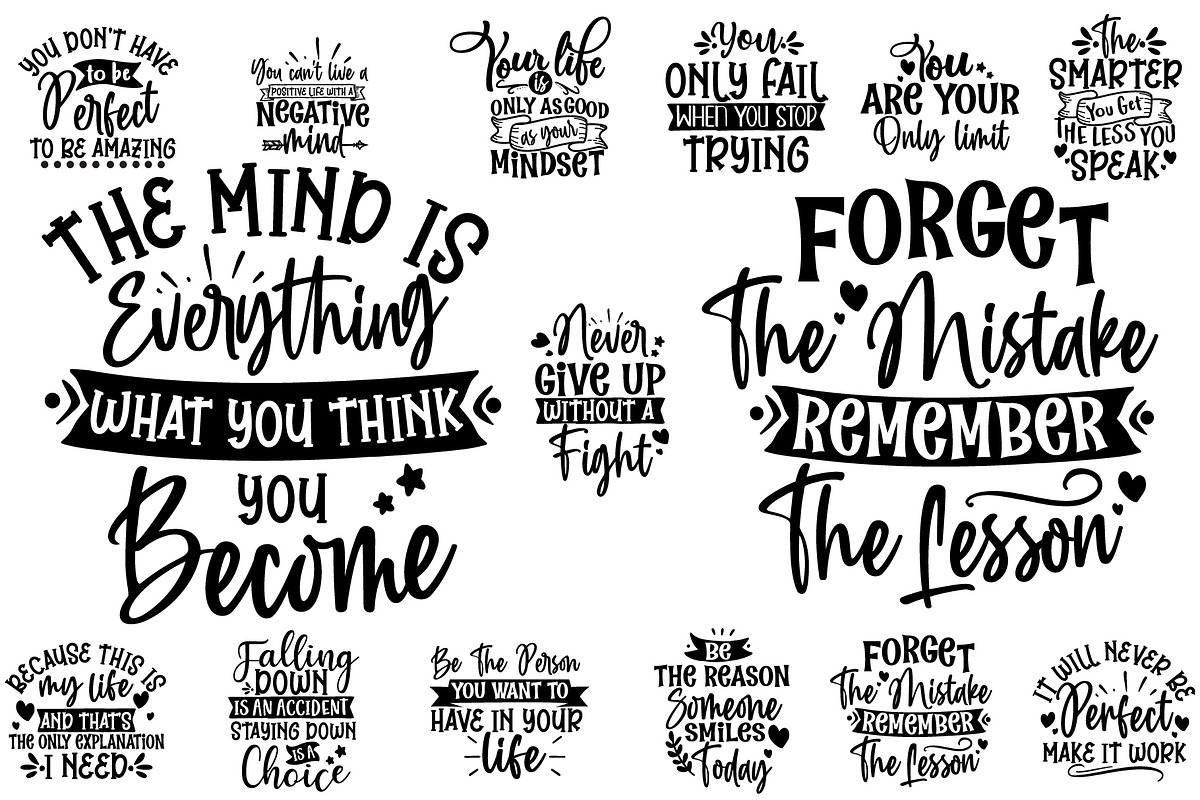 YOU DON'T HAVE
to be
Perfect
TO BE AMAZING
You can't live a
POSITIVE LIFE WITH A
NEGATIVE
mind
Your life
is
ONLY AS GOOD
as your
MINDSET
You
ONLY FAIL
WHEN YOU STOP
TRYING
You
ARE YOUR
Only limit
The
SMARTER
You Get
THE LESS YOU
SPEAK
THE MIND IS
Everything
WHAT YOU THINK
YOU
Become
Never
GIVE UP
WITHOUT A
Fight
FORGET
The Mistake
REMEMBER
The Lesson
BECAUSE THIS IS
my life
AND THAT'S
THE ONLY EXPLANATION
I NEED
Falling
DOWN
IS AN ACCIDENT
STAYING DOWN
IS A
Choice
Be The Person
YOU WANT TO
HAVE IN YOUR
life
BE
THE REASON
Someone
SMILES
Today
FORGET
The Mistake
REMEMBER
The Lesson
IT WILL NEVER BE
Perfect
MAKE IT WORK